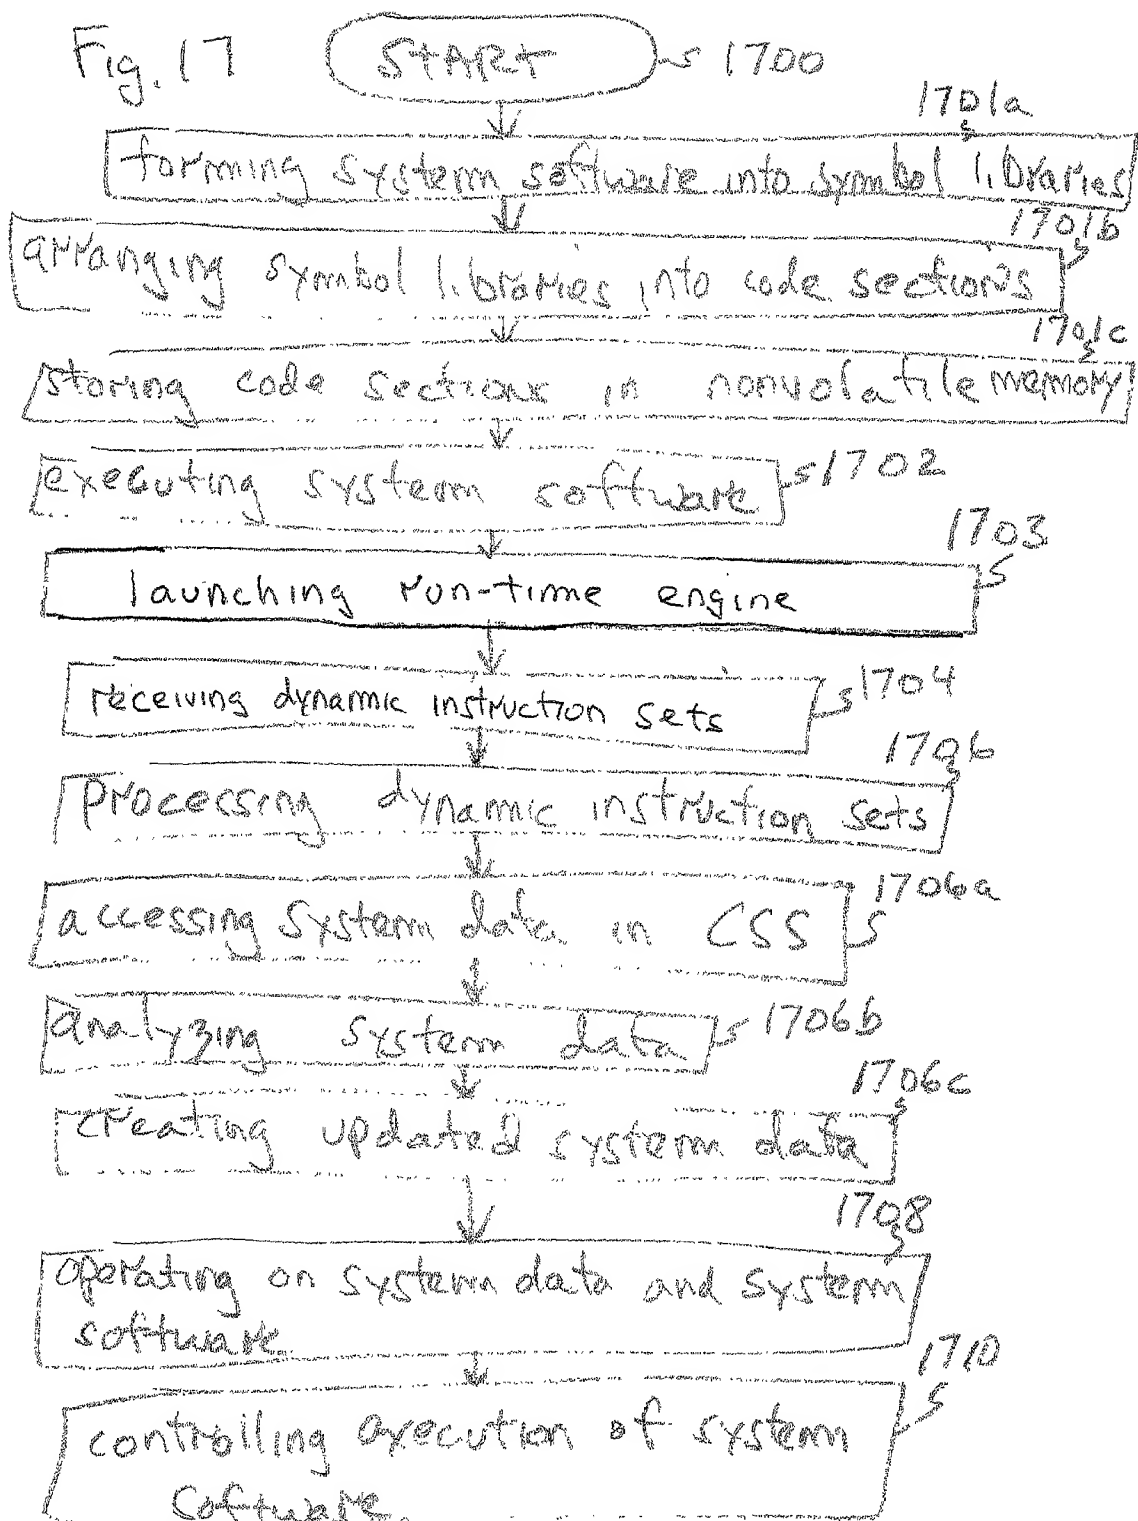 Fig. 17 START 1700
1701a
forming system software into symbol libraries
1701b
arranging symbol libraries into code sections
1701c
storing code sections in nonvolatile memory
executing system software 1702
1703
launching run-time engine
receiving dynamic instruction sets 1704
1706
processing dynamic instruction sets
1706a
accessing system data in CSS
analyzing system data 1706b
1706c
creating updated system data
1708
operating on system data and system
software
1710
controlling execution of system
software